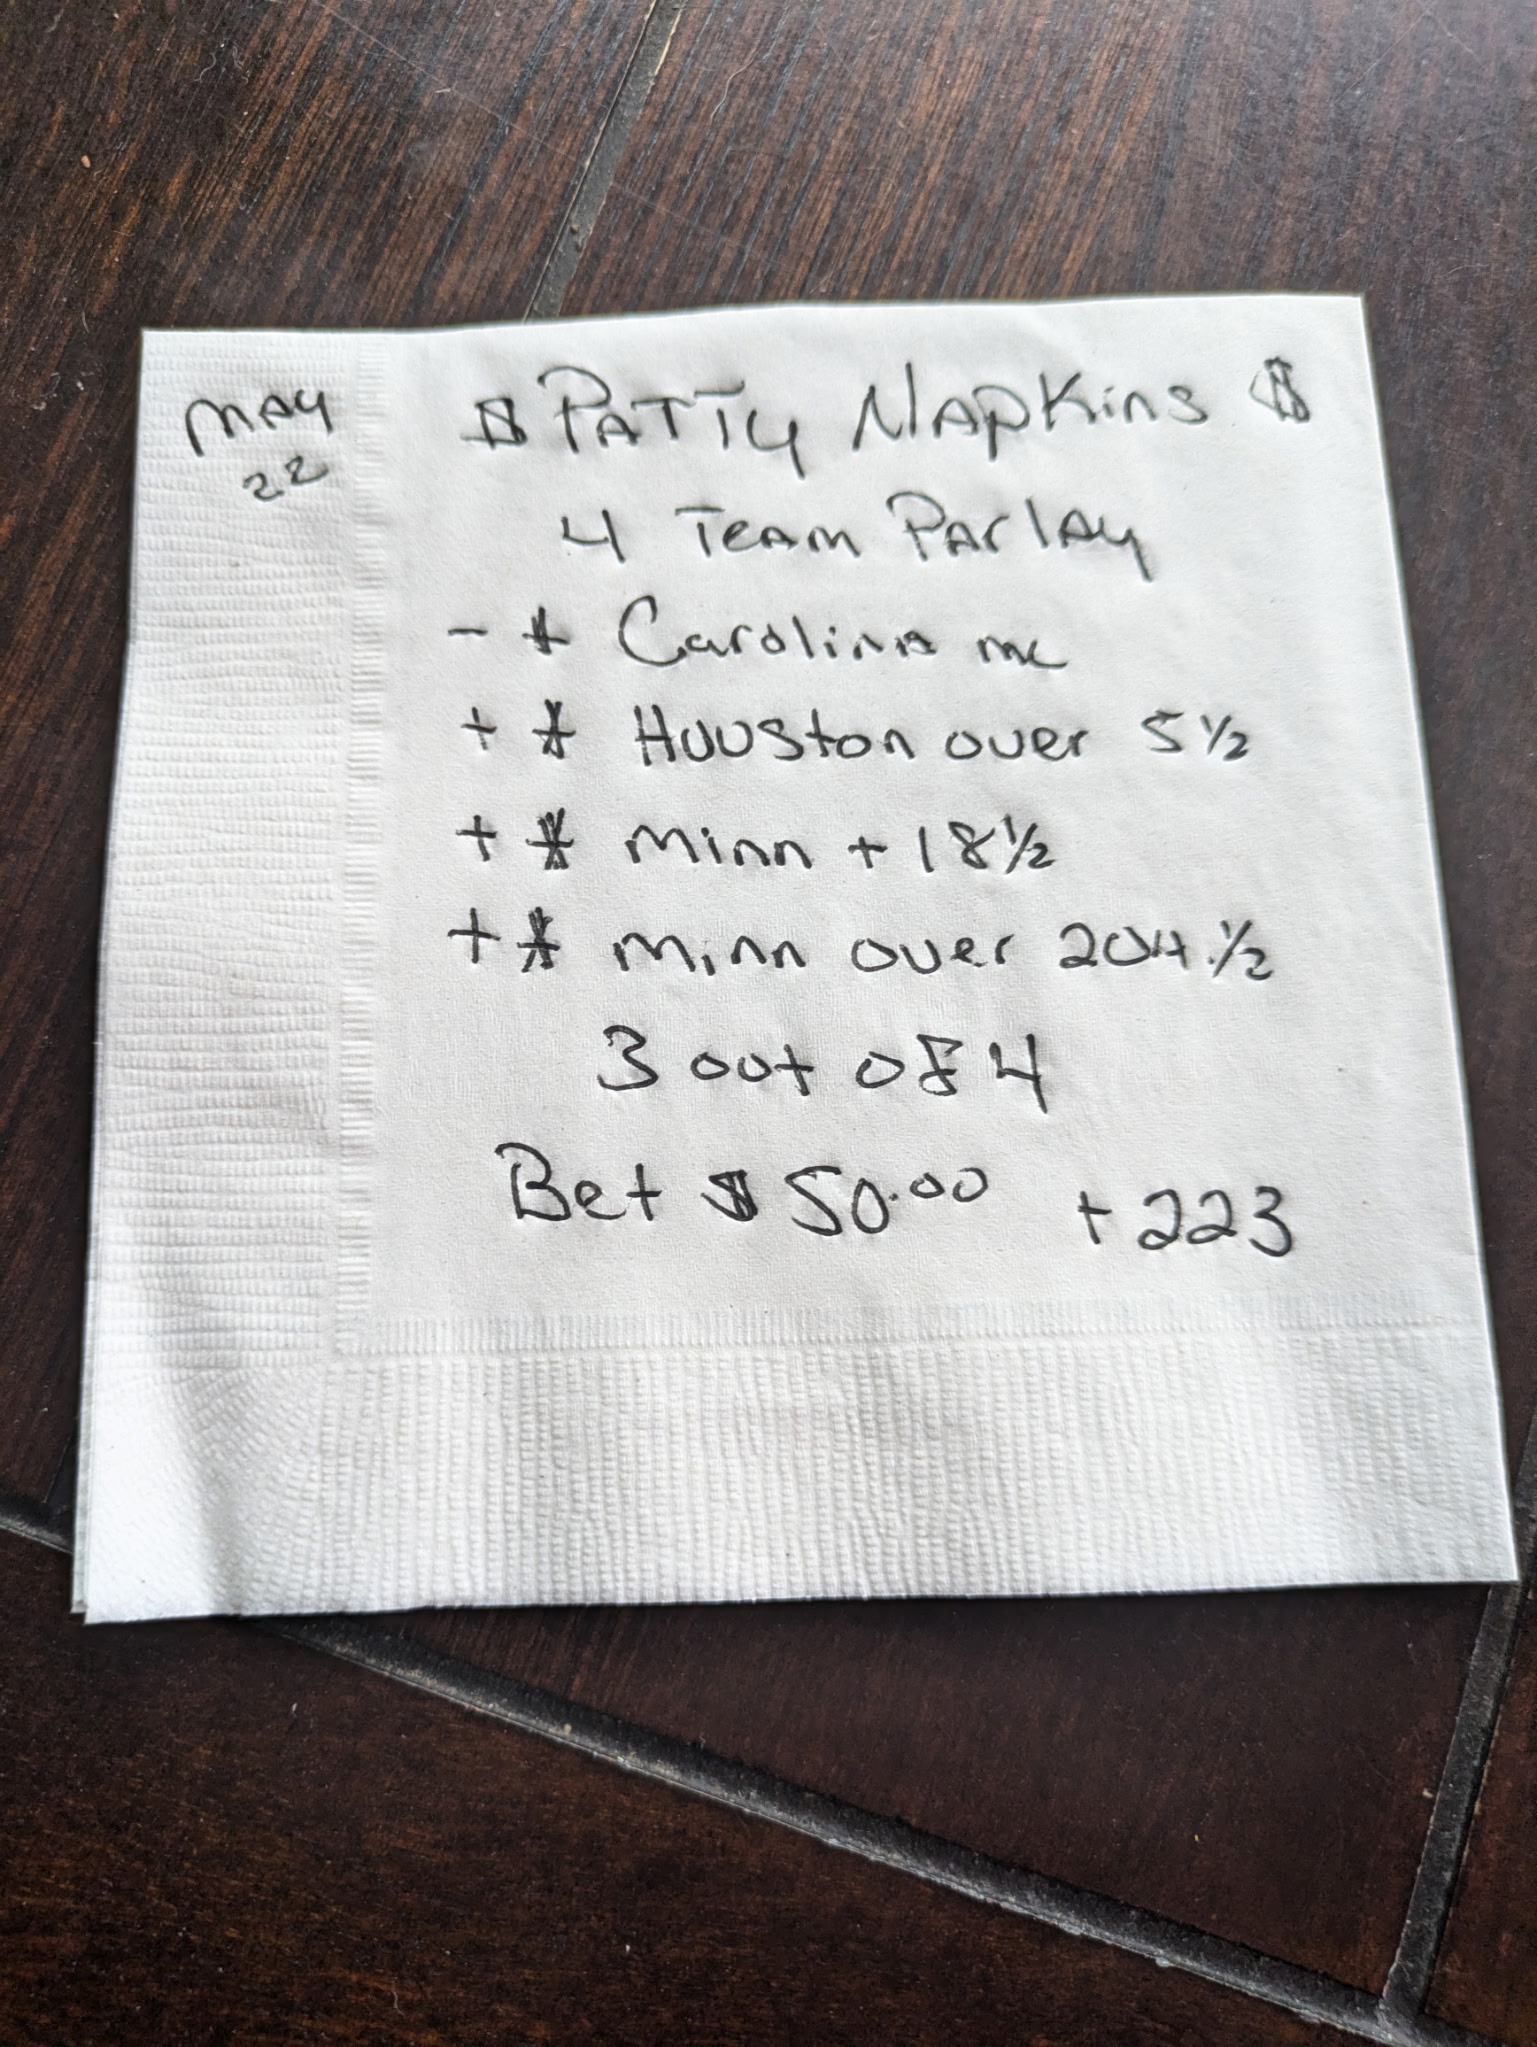 May
22
$ Patty Napkins $
4 Team Parlay
- * Carolina mc
+ * Huuston over 5 1/2
+ * Minn + 18 1/2
+ * Minn over 204.1/2
3 out of 4
Bet $ 50.00 + 223